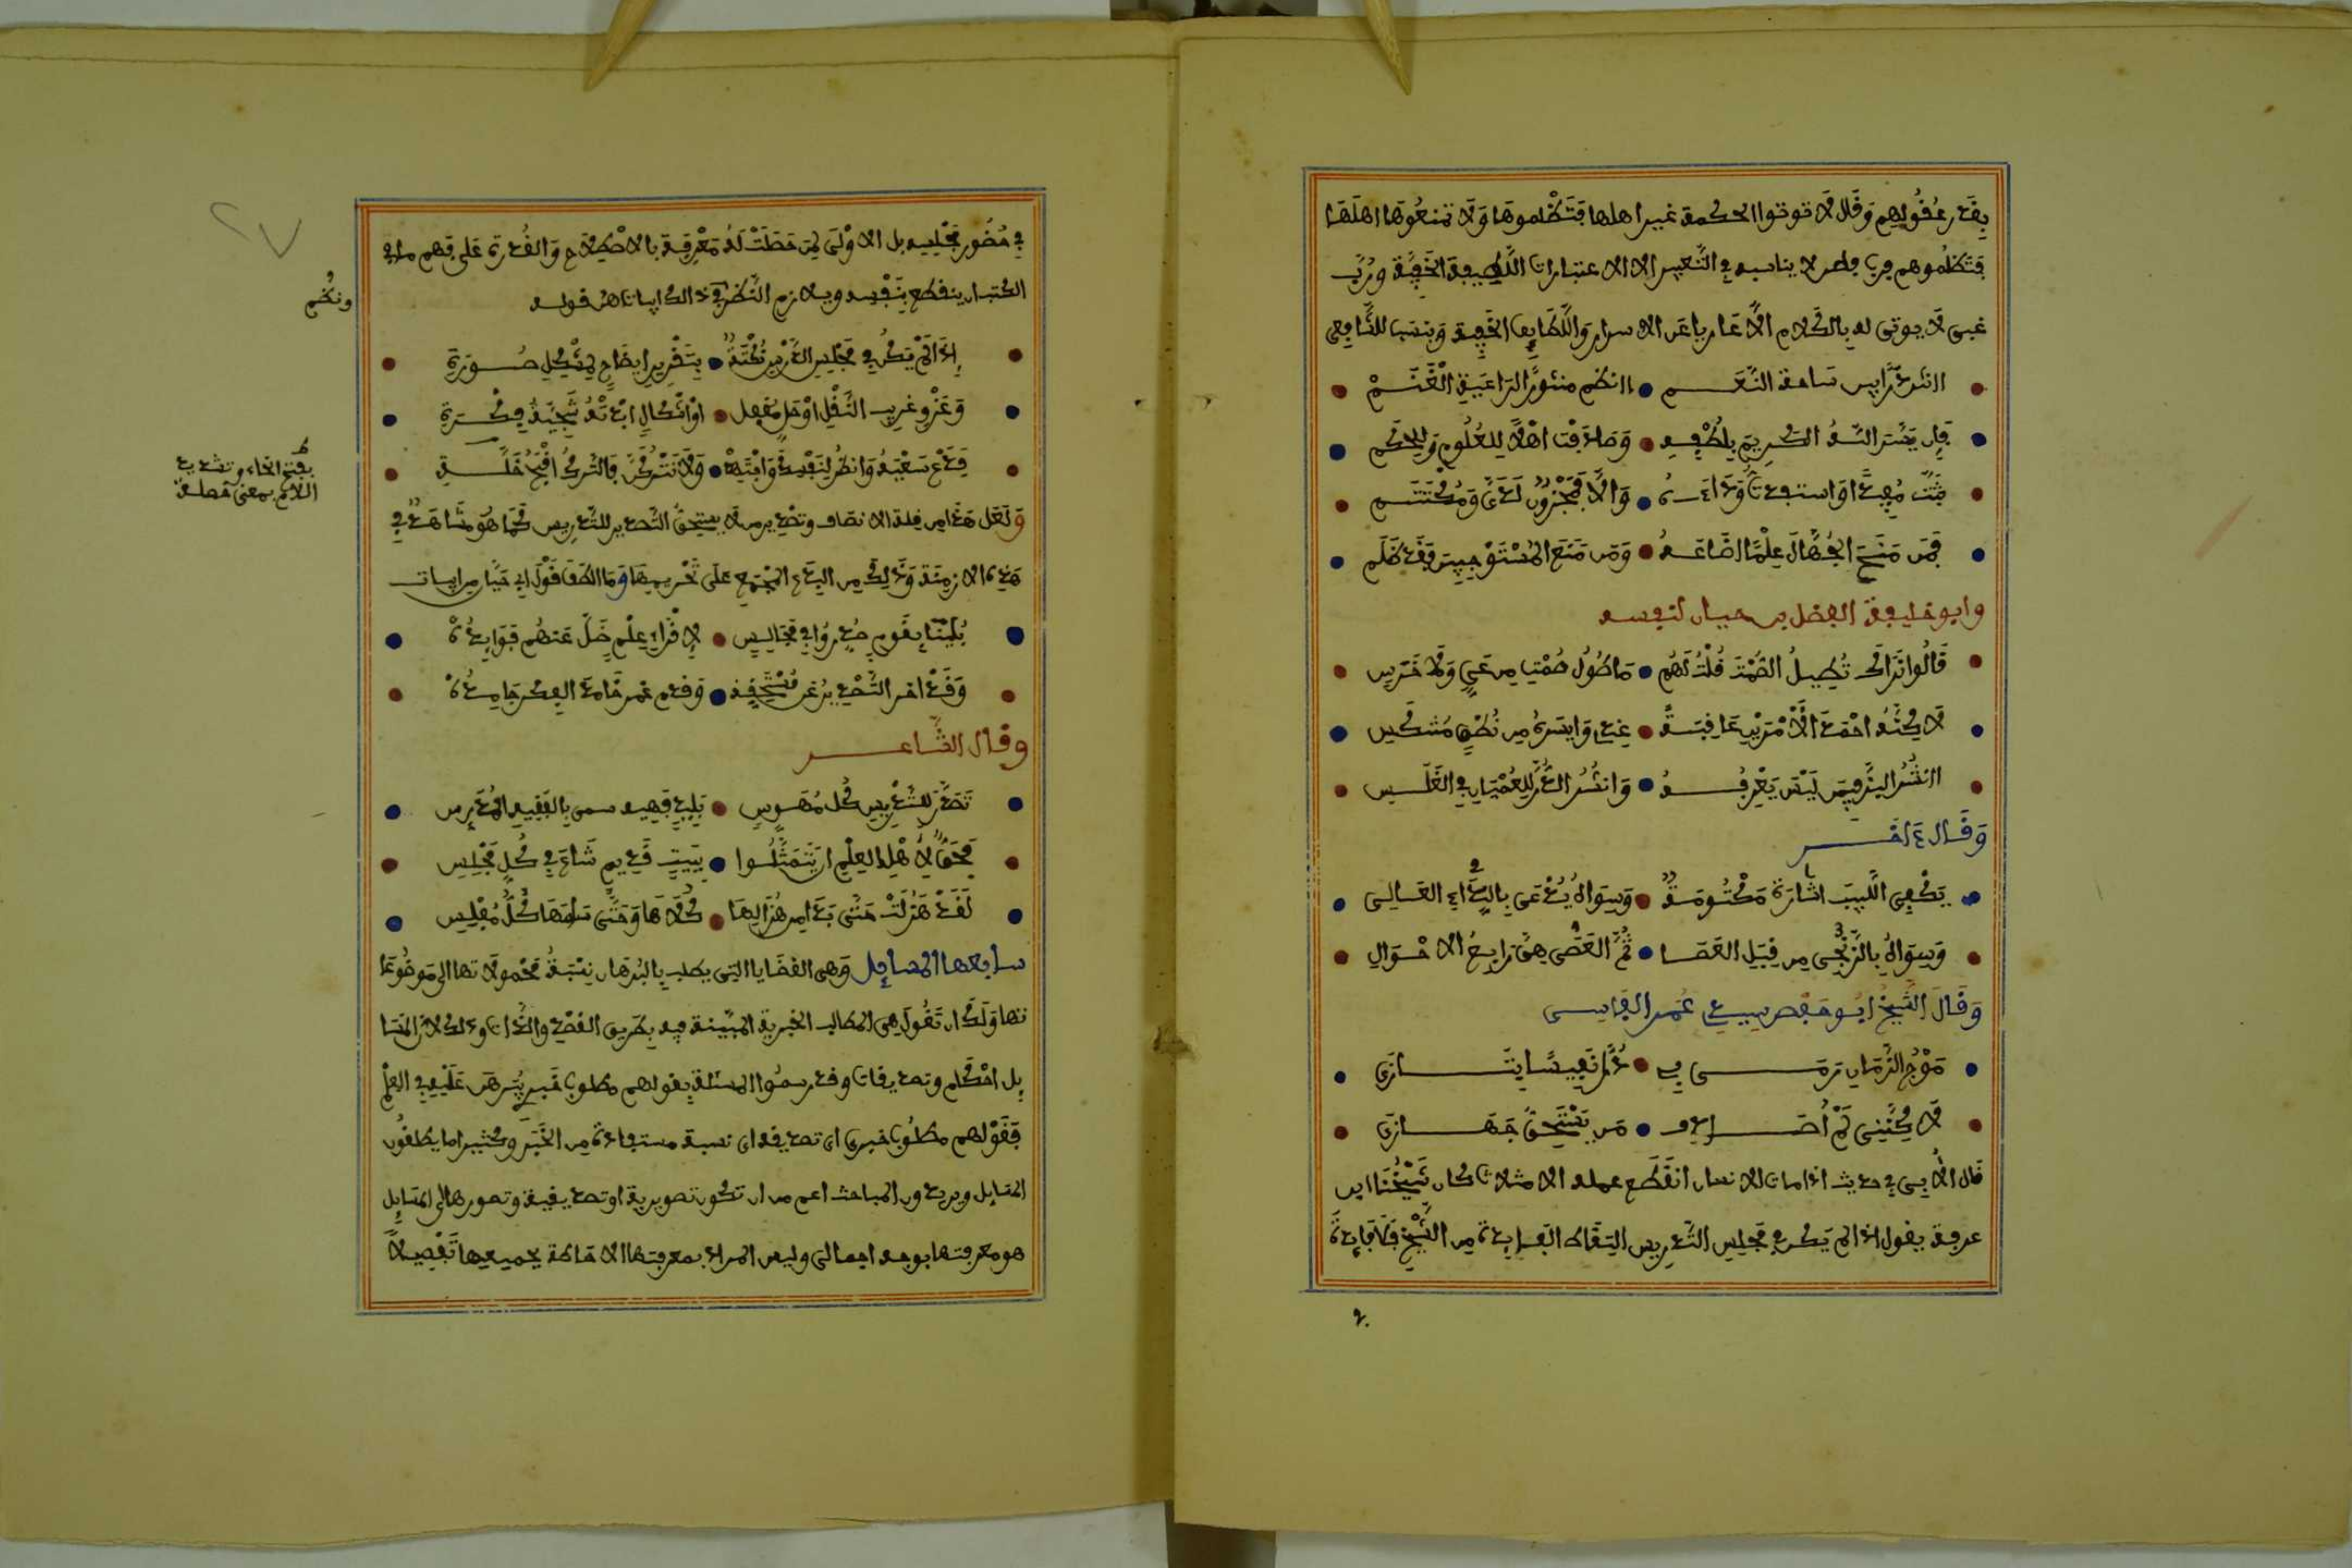 بقدر عقولهم وقال لا توتوا الحكمة غير اهلها فتظلموها ولا تمنعوها اهلها
فتظلموهم فرب قاصر لا يناسبه في التعبير الا الاعتبارات اللطيفة الخفية ورب
غبى لا يوتى له بالكلام الا عاريا عن الاسرار واللطايف الخفية وينسب للشافعى
اانثر درا بين سارحة النعم اانظم منثورا لراعية الغنم
فان يسر الله الكريم بلطفه وصادفت اهلا للعلوم وللحكم
بثثت مفيدا واستفدت وداده والا فمخزون لدى ومكتتم
فمن منح الجهال علما اضاعه ومن منع المستوجبين فقد ظلم
وابو خليفة الفضل بن حباب لنفسه
قالوا نراك تطيل الصمت قلت لهم ما طول صمتى من عي ولا خرس
لاكنه احمد الامرين عاقبة عندي وايسره من نطق شكس
اانشر البز فيمن ليس يعرفه وانشر الدر للعميان في الغلس
وقال ءاخر
يكفى اللبيب اشارة مكتومة وسواه يدعى بالنداء العالى
وسواه بالزجر من قبل العصا ثم العصى هى رابع الاحوال
وقال الشيخ ابو حفص سيدي عمر الفاسى
موج الزمان رمى بى درا نفيسا يتازى
لاكننى لم اصادف من يستحق جهازى
قال الابى في حديث اذا مات الانسان انقطع عمله الا من ثلاث كان شيخنا ابن
عرفة يقول اذا لم يكن في مجلس التدريس التقاط الفرايد من الشيخ فلا فايدة
في حضور مجلسه بل الاولى لمن حصلت له معرفة بالاصطلاح والقدرة على فهم ما في
الكتب ان ينقطع بنفسه ويلازم النظر في ذالك ابياتا هن قوله
ونظم
اذا لم يكن في مجلس الدرس نكتة بتقرير ايضاح لمشكل صورة
وعزو غريب النقل او حل مقفل او اشكال ابدته نتيجة فكرة
فدع سعيه وانظر لنفسك وانتبه ولا تتركن فالترك اقبح خلة
بفتح الخاء وتشديد
اللام بمعنى خصلة
ولعل هذا من قلة الانصاف وتصدير من لا يستحق التصدير للتدريس كما هو مشاهد في
هذه الازمنة وذلك من البدع المجمع على تحريمها وما الطف قول ابي حيان من ابيات
بلينا بقوم صدروا في مجالس لاقراء علم ضل عنهم فوايده
وقد اخر التصدير عن مستحقه وقدم غمر خامد الفكر جامده
وقال الشاعر
تصدر للتدريس كل مهوس بليد فهيه سمى بالفقيه المدرس
فحق لاهل العلم ان يتمثلوا ببيت قديم شاع في كل مجلس
لقد هزلت حتى بدا من هزالها كلاها وحتى سامها كل مفلس
سابعها المسايل وهى القضايا التى يطلب بالبرهان نسبة محمولاتها الى موضوعا
تها ولك ان تقول هى المطالب الخبرية المبينة فيه بطريق القصد والذات وذلك لان المسا
يل احكام وتصديقات وقد رسموا المسئلة بقولهم مطلوب خبرى يبرهن عليه في العلم
فقولهم مطلوب خبرى اى تصديقه اى نسبة مستفادة من الخبر وكثيرا ما يطلقون
المسايل ويريدون المباحث اعم من ان تكون تصويرية او تصديقية وتصورها الى المسايل
هو معرفتها بوجه اجمالى وليس المراد بمعرفتها الاحاطة بجميعها تفصيلا